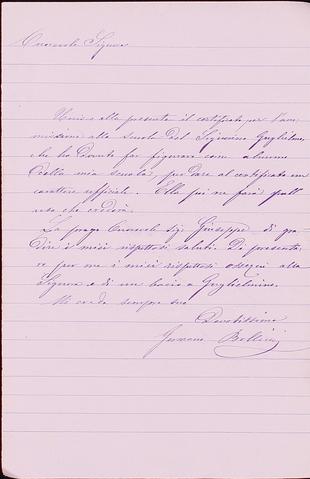 Onorevole Signore
Unisco alla presente il certificato per l'am
missione alla scuola del Signorino Guglielmo,
che ho dovuto far figurare come alunno
della mia scuola, per dare al certificato un
carattere ufficiale. Ella poi ne farà quell'
uso che crederà.
La prego Onorevole Sig. Giuseppe di gra
dire i miei rispettosi saluti. Da presenta
re per me i miei rispettosi ossequi alla
Signora e di un bacio a Guglielmino.
Mi creda sempre suo
Devotissimo
Bollini